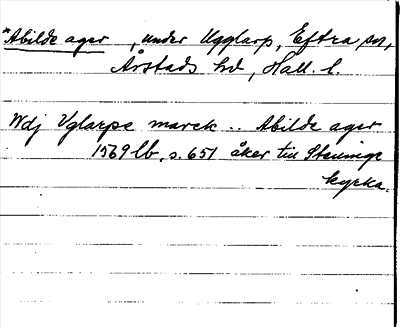 *Abilde ager, under Ugglarp, Eftra sn,
Årstads hd, Hall. l.
Wdj Vglarps marck .. Abilde ager
1569 lb, s. 651 åker till Steninge
kyrka.